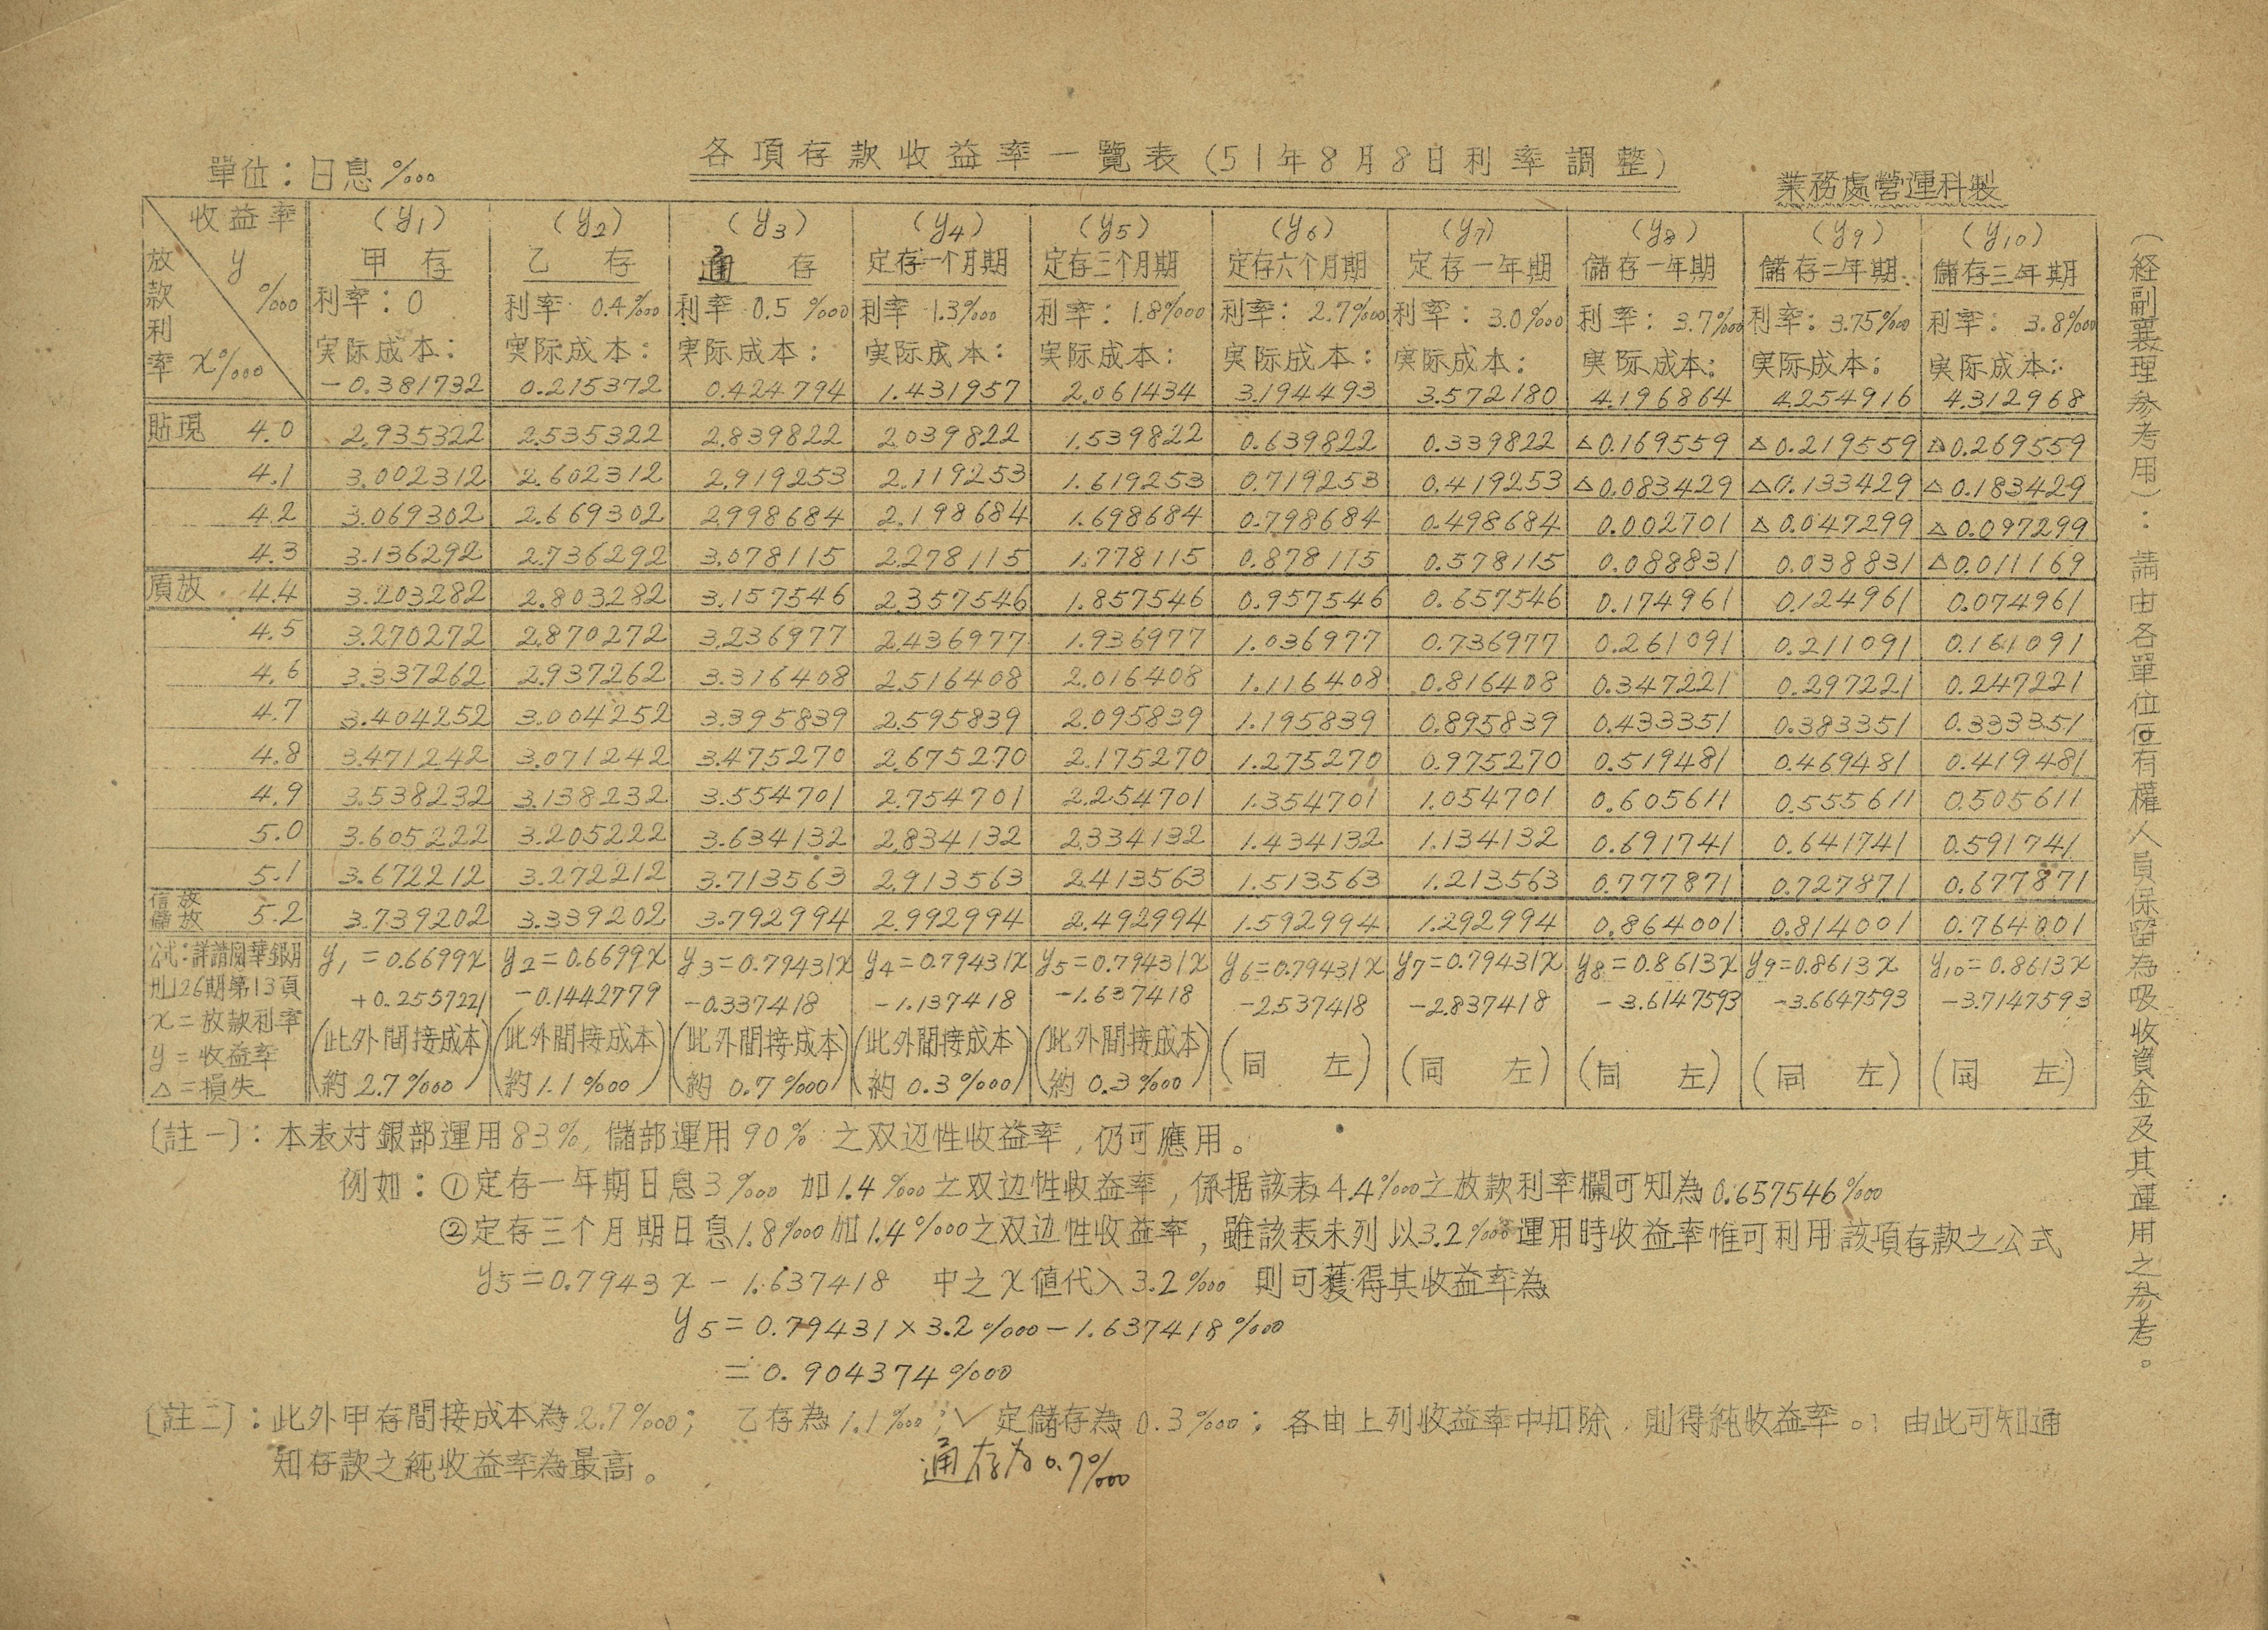 各項存款收益率一覽表(51年8月8日利率調整)
單位：日息‱
業務處營運科製
收益率 y ‱ 放款利率 x‱ | (y1) 甲存 利率：0 実际成本：-0.381732 | (y2) 乙存 利率 0.4‱ 実际成本：0.215372 | (y3) 通存 利率 0.5‱ 実际成本：0.424794 | (y4) 定存一个月期 利率 1.3‱ 実际成本：1.431957 | (y5) 定存三个月期 利率：1.8‱ 実际成本：2.061434 | (y6) 定存六个月期 利率：2.7‱ 実际成本：3.194493 | (y7) 定存一年期 利率：3.0‱ 実际成本：3.572180 | (y8) 儲存一年期 利率：3.7‱ 実际成本：4.196864 | (y9) 儲存二年期 利率：3.75‱ 実际成本：4.254916 | (y10) 儲存三年期 利率：3.8‱ 実际成本：4.312968
貼現 4.0 | 2.935322 | 2.535322 | 2.839822 | 2.039822 | 1.539822 | 0.639822 | 0.339822 | △0.169559 | △0.219559 | △0.269559
4.1 | 3.002312 | 2.602312 | 2.919253 | 2.119253 | 1.619253 | 0.719253 | 0.419253 | △0.083429 | △0.133429 | △0.183429
4.2 | 3.069302 | 2.669302 | 2.998684 | 2.198684 | 1.698684 | 0.798684 | 0.498684 | 0.002701 | △0.047299 | △0.097299
4.3 | 3.136292 | 2.736292 | 3.078115 | 2.278115 | 1.778115 | 0.878115 | 0.578115 | 0.088831 | 0.038831 | △0.011169
盾放 4.4 | 3.203282 | 2.803282 | 3.157546 | 2.357546 | 1.857546 | 0.957546 | 0.657546 | 0.174961 | 0.124961 | 0.074961
4.5 | 3.270272 | 2.870272 | 3.236977 | 2.436977 | 1.936977 | 1.036977 | 0.736977 | 0.261091 | 0.211091 | 0.161091
4.6 | 3.337262 | 2.937262 | 3.316408 | 2.516408 | 2.016408 | 1.116408 | 0.816408 | 0.347221 | 0.297221 | 0.247221
4.7 | 3.404252 | 3.004252 | 3.395839 | 2.595839 | 2.095839 | 1.195839 | 0.895839 | 0.433351 | 0.383351 | 0.333351
4.8 | 3.471242 | 3.071242 | 3.475270 | 2.675270 | 2.175270 | 1.275270 | 0.975270 | 0.519481 | 0.469481 | 0.419481
4.9 | 3.538232 | 3.138232 | 3.554701 | 2.754701 | 2.254701 | 1.354701 | 1.054701 | 0.605611 | 0.555611 | 0.505611
5.0 | 3.605222 | 3.205222 | 3.634132 | 2.834132 | 2.334132 | 1.434132 | 1.134132 | 0.691741 | 0.641741 | 0.591741
5.1 | 3.672212 | 3.272212 | 3.713563 | 2.913563 | 2.413563 | 1.513563 | 1.213563 | 0.777871 | 0.727871 | 0.677871
信放 儲放 5.2 | 3.739202 | 3.339202 | 3.792994 | 2.992994 | 2.492994 | 1.592994 | 1.292994 | 0.864001 | 0.814001 | 0.764001
公式：詳請閱華銀月刊126期第13頁 x=放款利率 y=收益率 △=損失 | y1=0.6699x+0.2557221 (此外間接成本約2.7‱) | y2=0.6699x-0.1442779 (此外間接成本約1.1‱) | y3=0.79431x-0.337418 (此外間接成本約0.7‱) | y4=0.79431x-1.137418 (此外間接成本約0.3‱) | y5=0.79431x-1.637418 (此外間接成本約0.3‱) | y6=0.79431x-2.537418 (同左) | y7=0.79431x-2.837418 (同左) | y8=0.8613x-3.6147593 (同左) | y9=0.8613x-3.6647593 (同左) | y10=0.8613x-3.7147593 (同左)
(経副襄理參考用)：請由各單位有權人員保留為吸收資金及其運用之參考。
〔註一〕：本表対銀部運用83%，儲部運用90%之双边性收益率，仍可應用。
例如：①定存一年期日息3‱加1.4‱之双边性收益率，係据該表4.4‱之放款利率欄可知為0.657546‱
②定存三个月期日息1.8‱加1.4‱之双边性收益率，雖該表未列以3.2‱運用時收益率惟可利用該項存款之公式
y5=0.7943x-1.637418 中之x值代入3.2‱則可獲得其收益率為
y5=0.79431×3.2‱-1.637418‱
=0.904374‱
〔註二〕：此外甲存間接成本為2.7‱；乙存為1.1‱；✓定儲存為0.3‱；各由上列收益率中扣除，則得純收益率。由此可知通
通存为0.7‱
知存款之純收益率為最高。